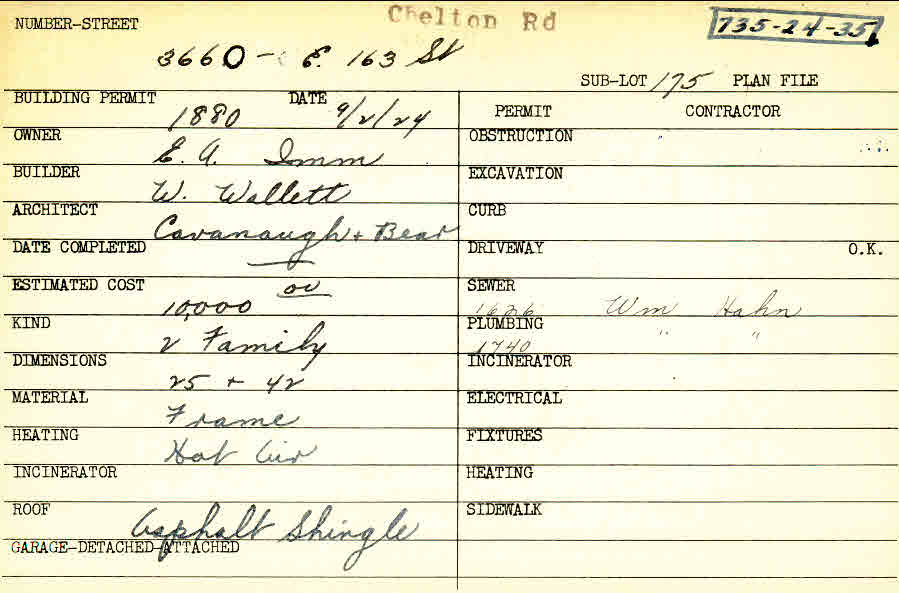 Chelton Rd
735-24-35
NUMBER-STREET
3660 - E. 163 St
SUB-LOT 175 PLAN FILE
BUILDING PERMIT 1880 DATE 9/2/24
OWNER E. A. Imm
BUILDER W. Wallett
ARCHITECT Cavanaugh + Bear
DATE COMPLETED
ESTIMATED COST 10,000 00
KIND 2 Family
DIMENSIONS 25 + 42
MATERIAL Frame
HEATING Hot Air
INCINERATOR
ROOF Asphalt Shingle
GARAGE-DETACHED-ATTACHED
PERMIT CONTRACTOR
OBSTRUCTION
EXCAVATION
CURB
DRIVEWAY O.K.
SEWER
1626 Wm Hahn
PLUMBING " "
1740
INCINERATOR
ELECTRICAL
FIXTURES
HEATING
SIDEWALK